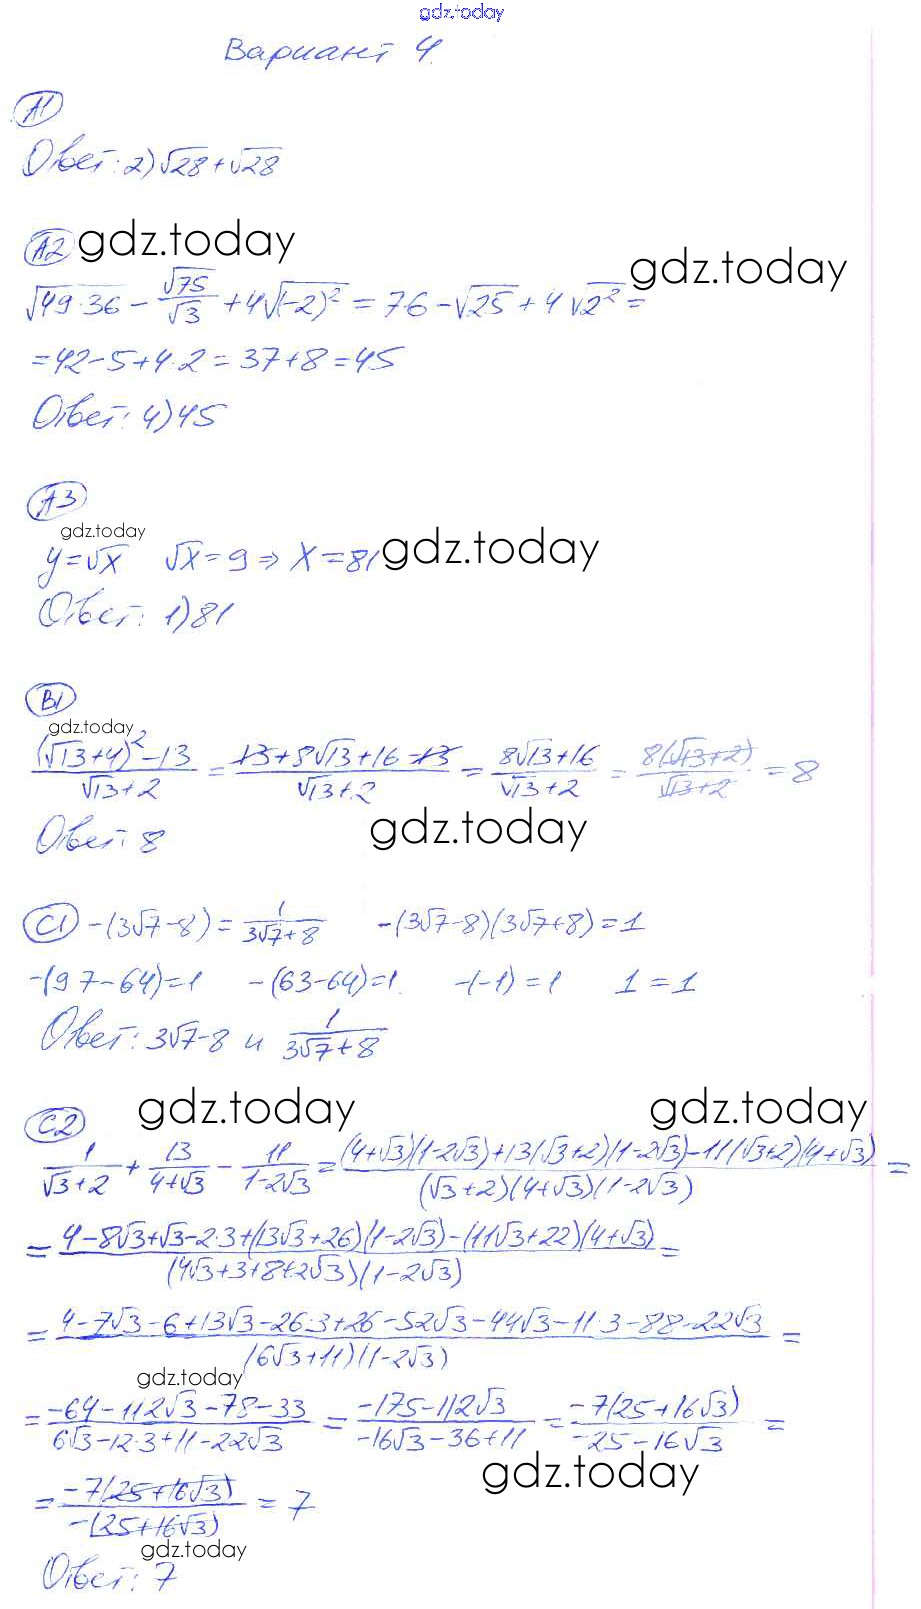 gdz.today
Вариант 4.
A1
Ответ: 2) √28 + √28
A2 gdz.today
gdz.today
√(49·36) − √75/√3 + 4√((−2)²) = 7·6 − √25 + 4√(2²) =
= 42 − 5 + 4·2 = 37 + 8 = 45
Ответ: 4) 45
A3
gdz.today
y = √x √x = 9 ⇒ x = 81 gdz.today
Ответ: 1) 81
B1
gdz.today
((√13+4)² − 13)/(√13+2) = (13 + 8√13 + 16 − 13)/(√13+2) = (8√13+16)/(√13+2) = 8(√13+2)/(√13+2) = 8
Ответ: 8 gdz.today
C1 −(3√7−8) = 1/(3√7+8) −(3√7−8)(3√7+8) = 1
−(9·7−64) = 1 −(63−64) = 1. −(−1) = 1 1 = 1
Ответ: 3√7−8 и 1/(3√7+8)
C2 gdz.today gdz.today
1/(√3+2) + 13/(4+√3) − 11/(1−2√3) = ((4+√3)(1−2√3)+13(√3+2)(1−2√3)−11(√3+2)(4+√3))/((√3+2)(4+√3)(1−2√3)) =
= (4−8√3+√3−2·3+(13√3+26)(1−2√3)−(11√3+22)(4+√3))/((4√3+3+8+2√3)(1−2√3)) =
= (4−7√3−6+13√3−26·3+26−52√3−44√3−11·3−88−22√3)/((6√3+11)(1−2√3)) =
gdz.today
= (−64−112√3−78−33)/(6√3−12·3+11−22√3) = (−175−112√3)/(−16√3−36+11) = −7(25+16√3)/(−25−16√3) =
gdz.today
= −7(25+16√3)/(−(25+16√3)) = 7
gdz.today
Ответ: 7